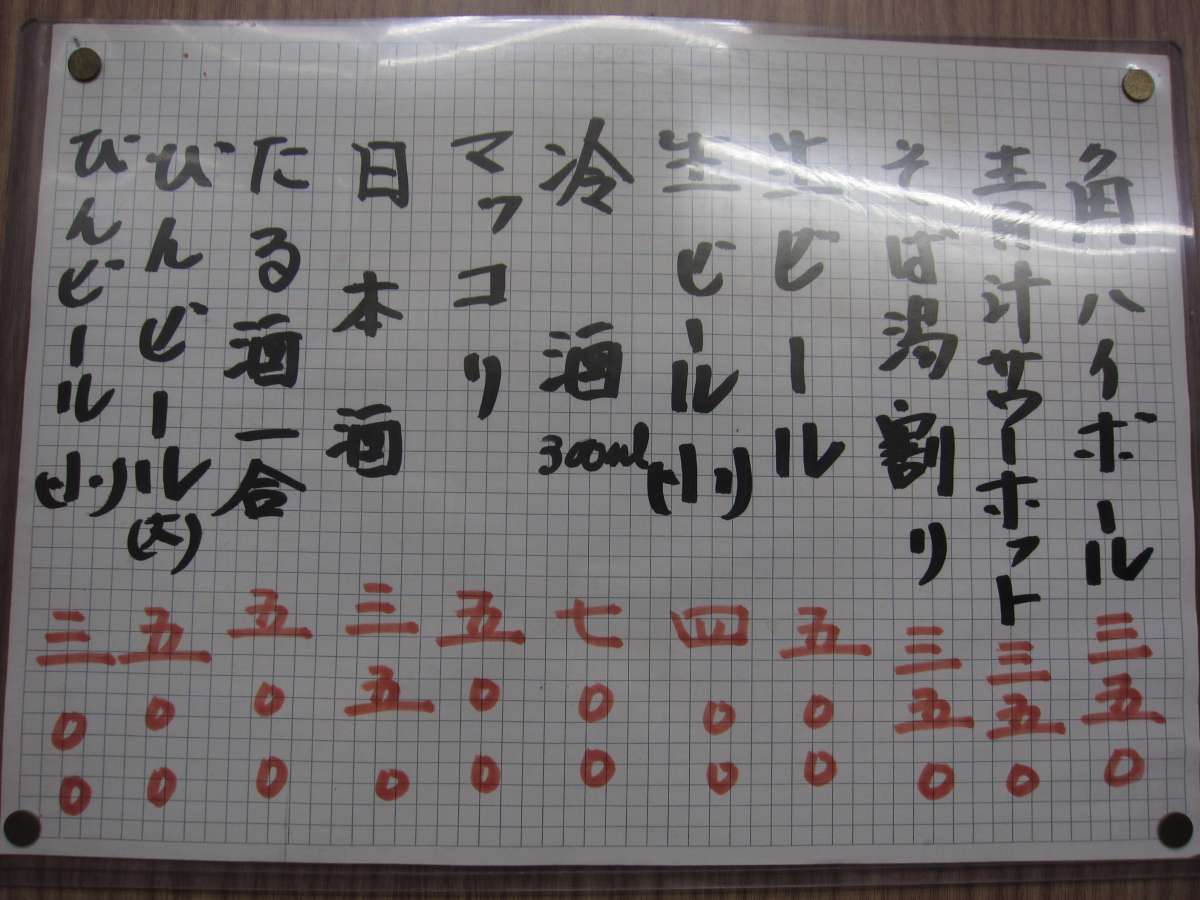 角ハイボール 三五0
青汁サワーホット 三五0
そば湯割り 三五0
生ビール 五00
生ビール(小) 四00
冷酒300ml 七00
マッコリ 五00
日本酒 三五0
たる酒一合 五00
びんビール(大) 五00
びんビール(小) 三00